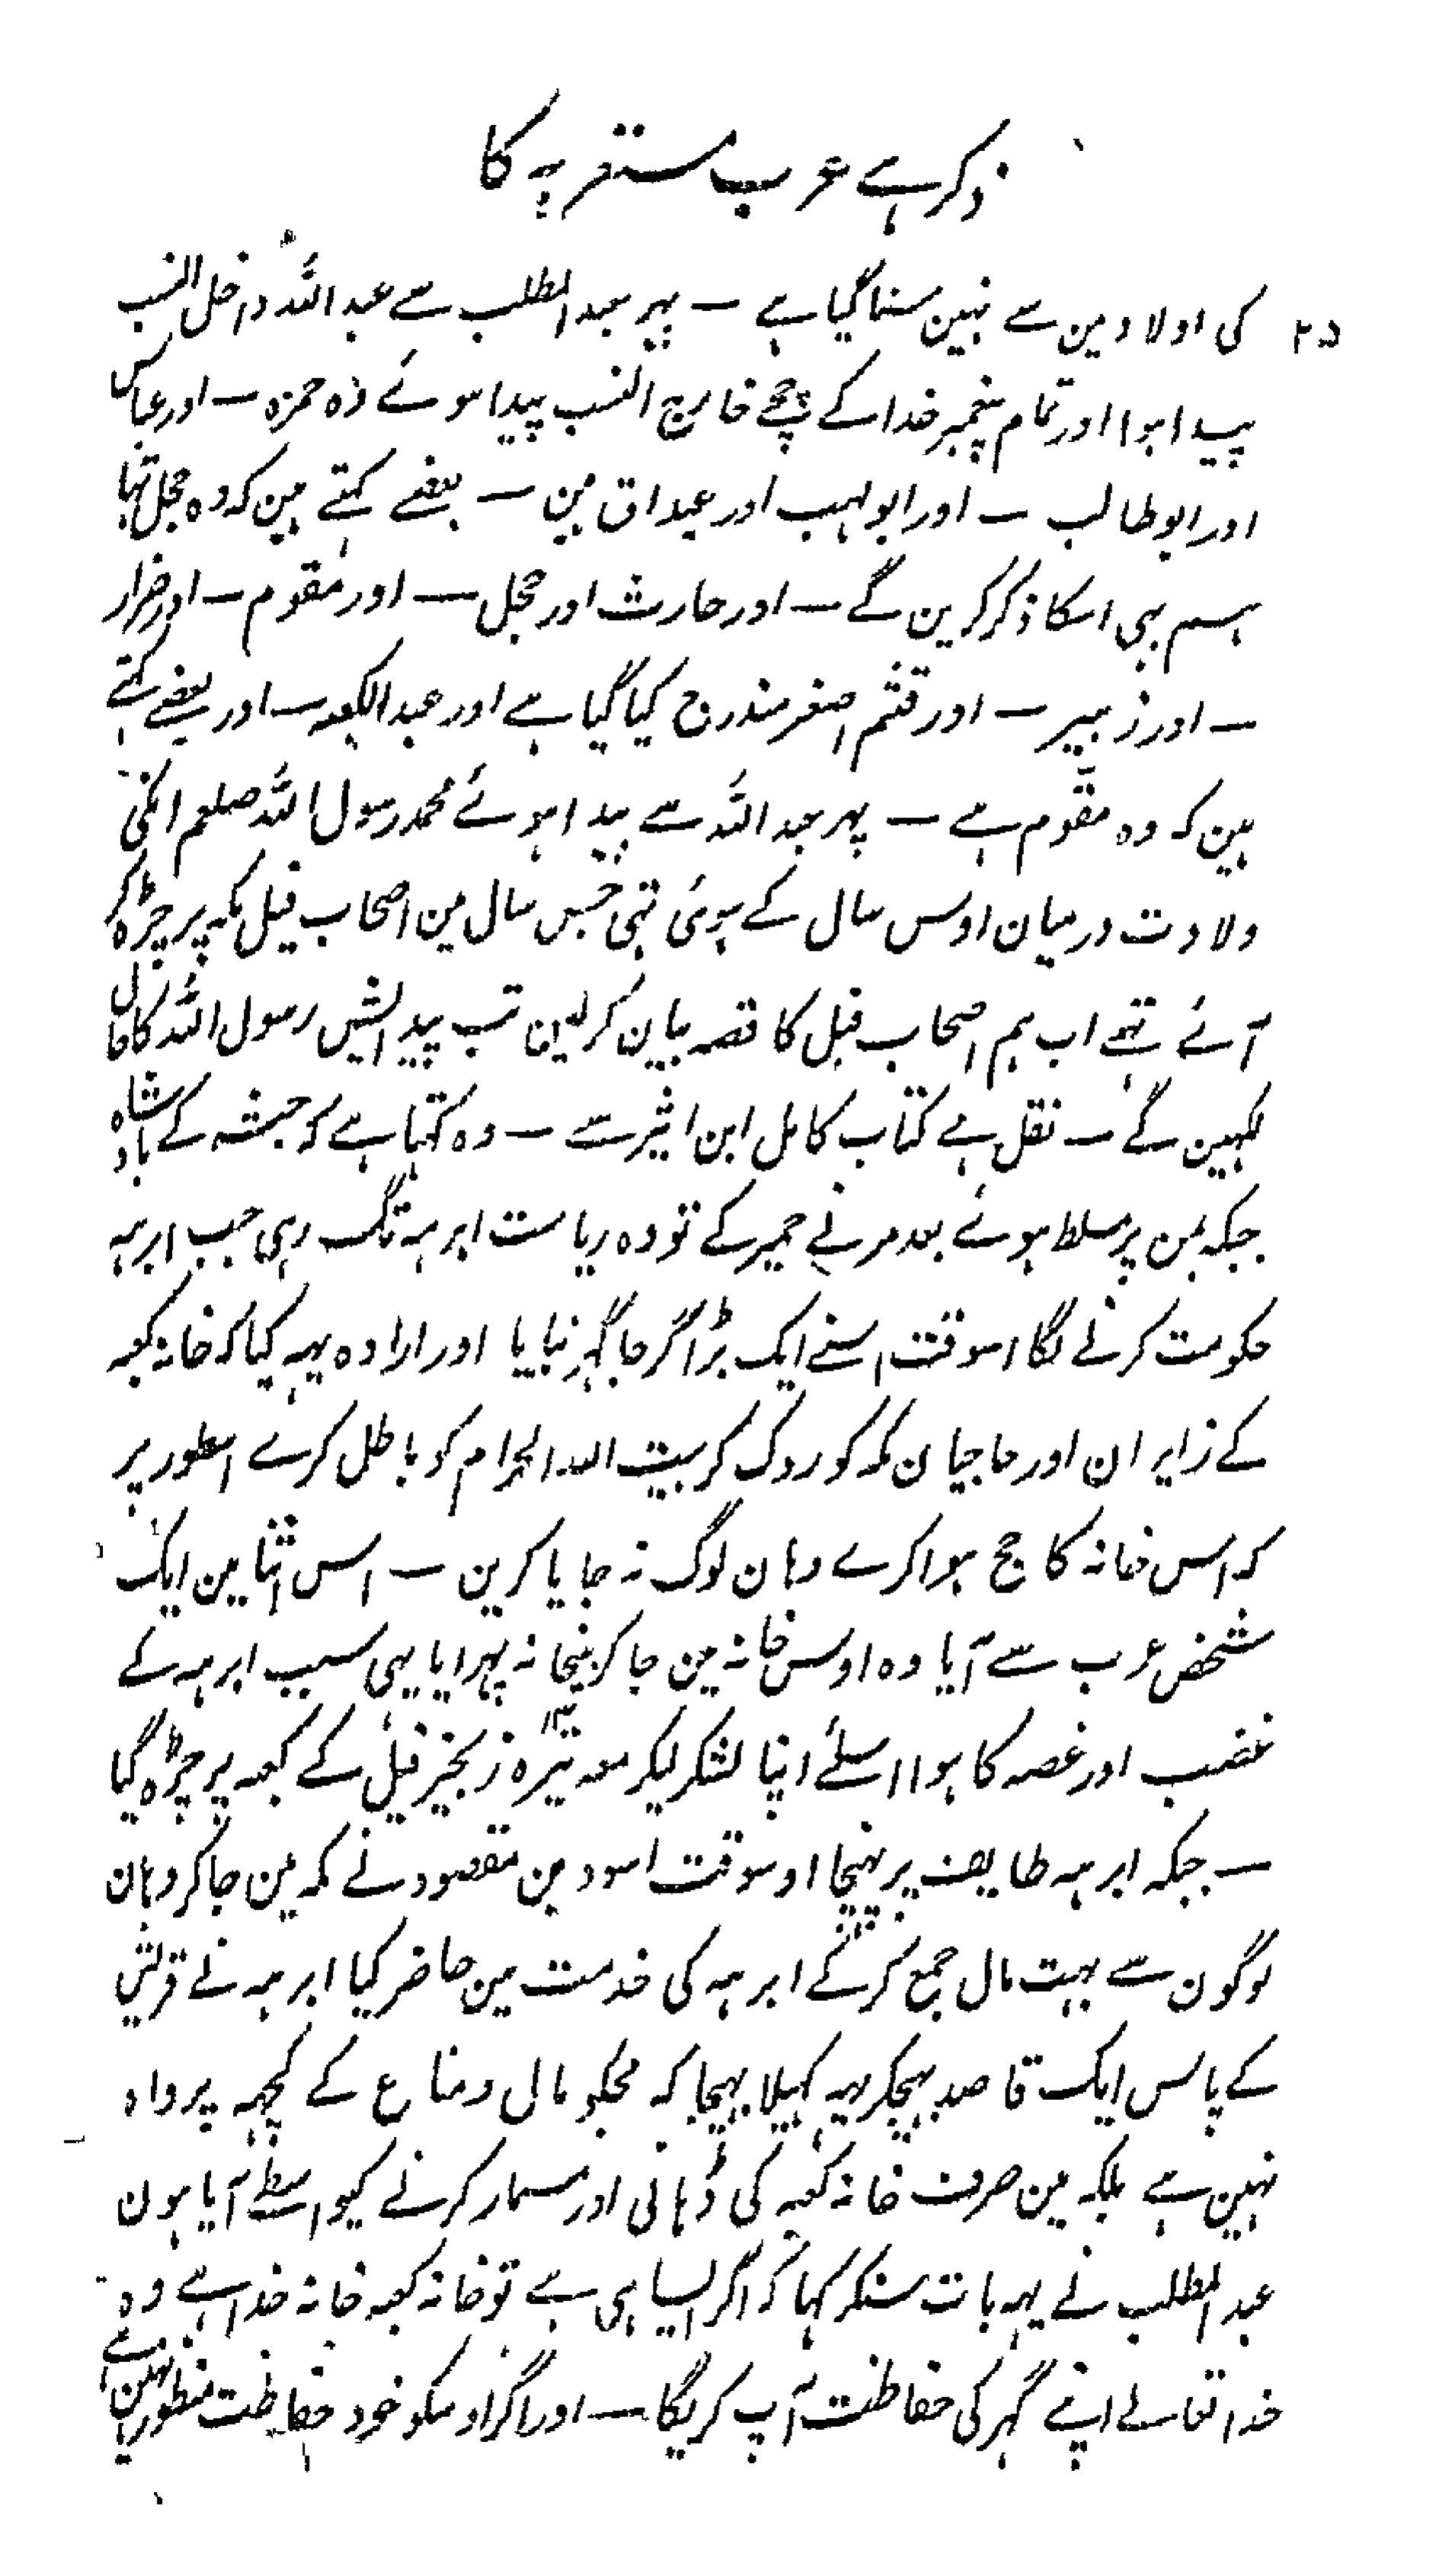 ذکر ہے عرب مستعربہ کا
۲۵ کی اولاد مین سے نہین سنا گیا ہے — پہر عبد المطلب سے عبد اللہ داخل النسب
پیدا ہوا اور تمام پیغمبر خدا کے چچے خارج النسب پیدا ہوئے وہ حمزہ — اور عباس
اور ابو طالب — اور ابو لہب اور عیداق ہین — بعضے کہتے ہین کہ وہ حجل تہا
ہم بہی اسکا ذکر کرین گے — اور حارث اور حجل — اور مقوم — اور ضرار
— اور زبیر — اور قثم اصغر مندرج کیا گیا ہے اور عبد الکعبہ — اور بعضے کہتے
ہین کہ وہ مقوّم ہے — پہر عبد اللہ سے پیدا ہوئے محمد رسول اللہ صلعم انکی
ولادت درمیان اوس سال کے ہوئی تہی جس سال مین اصحاب فیل مکہ پر چڑہ کر
آئے تہے اب ہم اصحاب فیل کا قصہ بیان کرلین تب پیدایش رسول اللہ کا حال
لکہین گے — نقل ہے کتاب کامل ابن اثیر سے — وہ کہتا ہے کہ حبشہ کے بادشاہ
جبکہ یمن پر مسلط ہوئے بعد مرنے حمیر کے تو وہ ریاست ابرہہ تک رہی جب ابرہہ
حکومت کرنے لگا اسوقت اسنے ایک بڑا گرجا گہر بنایا اور ارادہ یہہ کیا کہ خانہ کعبہ
کے زایران اور حاجیان مکہ کو روک کر بیت اللہ الحرام کو باطل کرے اسطور پر
کہ اس خانہ کا حج ہوا کرے وہان لوگ نہ جایا کرین — اس اثنا مین ایک
شخص عرب سے آیا وہ اوس خانہ مین جا کر پیخانہ پہرایا یہی سبب ابرہہ کے
غضب اور غصہ کا ہوا اسلئے اپنا لشکر لیکر معہ تیرہ ۱۳ زنجیر فیل کے کعبہ پر چڑہ گیا
— جبکہ ابرہہ طایف پر پہنچا اوسوقت اسود بن مقصود نے مکہ مین جا کر وہان
لوگون سے بہت مال جمع کر کے ابرہہ کی خدمت مین حاضر کیا ابرہہ نے قریش
کے پاس ایک قاصد بہیجکر یہہ کہلا بہیجا کہ مجکو مال و متاع کے کچہہ پرواہ
نہین ہے بلکہ مین صرف خانہ کعبہ کی ڈہانی اور مسمار کرنے کیواسطے آیا ہون
عبد المطلب نے یہہ بات سنکر کہا کہ اگر ایسا ہی ہے تو خانہ کعبہ خانہ خدا ہے وہ
خدا تعالے اپنے گہر کی حفاظت آپ کریگا — اور اگر اوسکو خود حفاظت منظور نہین ہے